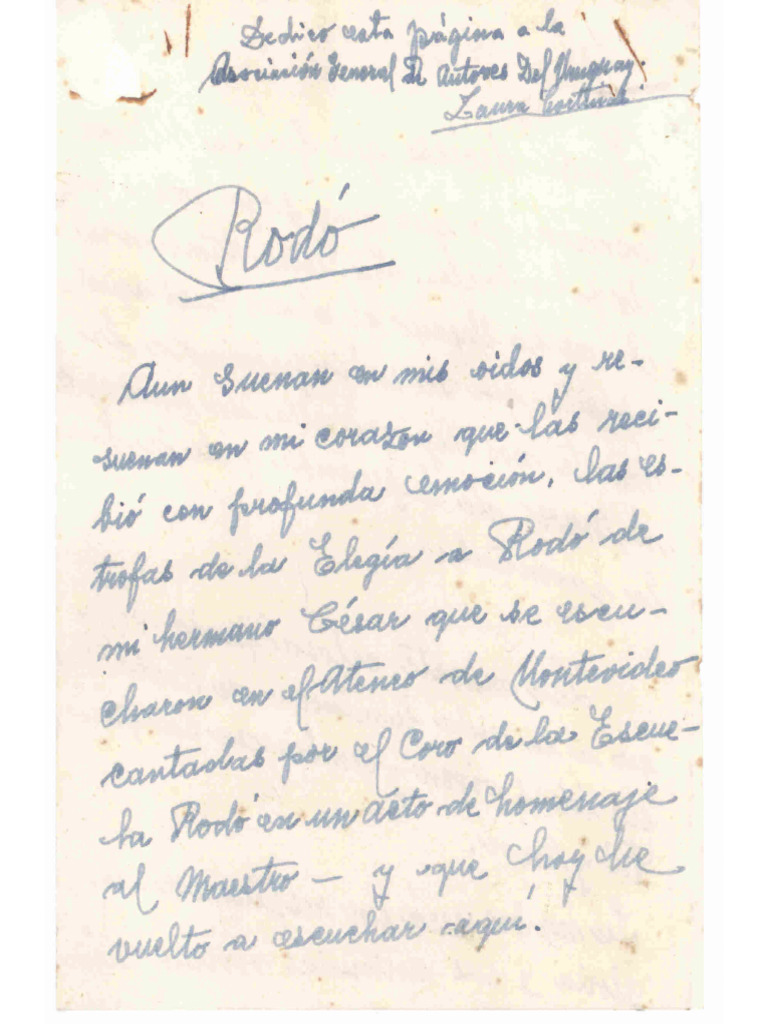 Dedico esta página a la
Asociación General De Autores Del Uruguay.
Laura Cortinas.
Rodó
Aun suenan en mis oidos y re-
suenan en mi corazon que las reci-
bió con profunda emoción, las es-
trofas de la Elegía a Rodó de
mi hermano César que se escu-
charon en el Ateneo de Montevideo
cantadas por el Coro de la Escue-
la Rodó en un acto de homenaje
al Maestro — y que hoy he
vuelto a escuchar aquí.